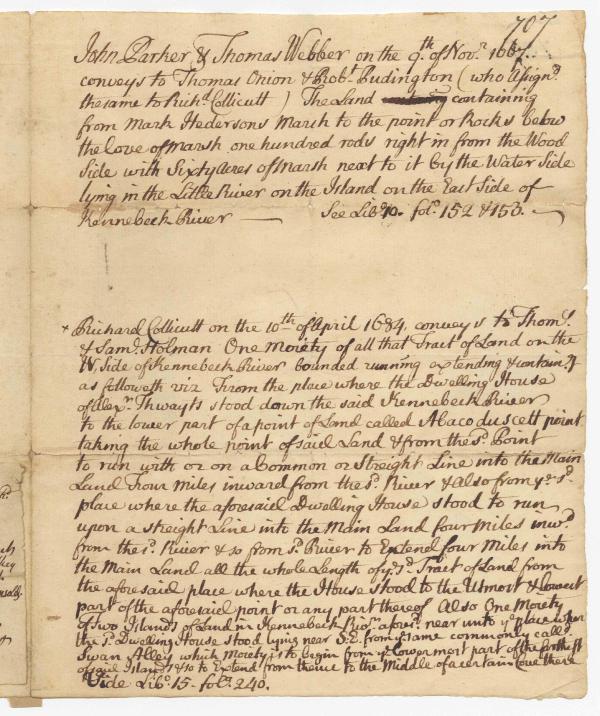 707
John Parker & Thomas Webber on the 9th of Novr. 1667.
conveys to Thomas Onion & Robt. Pudington (who assignd.
the same to Richd. Collicutt) The Land containing
from Mark Hedersons Marsh to the point or Rocks below
the Cove of Marsh one hundred rods right in from the Wood
Side with Sixty acres of Marsh next to it by the Water Side
lying in the Little River on the Island on the East Side of
Kennebeck River — See Libo. 10. fol. 152 & 153.
+ Richard Collicutt on the 10th of April 1684, conveys to Thoms.
& Saml. Holman One Moiety of all that Tract of Land on the
W. Side of Kennebeck River bounded running extending & containg
as followeth viz From the place where the Dwelling House
of Alexr. Thwayts stood down the said Kennebeck River
to the lower part of a point of Land called Abacoduscett point
taking the whole point of said Land & from the sd. Point
to run with or on a Common or Streight Line into the Main
Land Four miles inward from the sd. River & Also from ye. sd.
place where the aforesaid Dwelling House stood to run
upon a streight Line into the Main Land four Miles inwd.
from the sd. River & so from sd. River to Extend four Miles into
the Main Land all the whole Length of ye. sd. Tract of Land from
the aforesaid place where the House stood to the Utmost & Lowest
part of the aforesaid point or any part thereof Also One Moiety
of two Islands of Land in Kennebeck Rivr. aforesd. near unto ye place where
the sd. Dwelling House stood lying near S.E. from ye same commonly called
Swan Alley which Moiety is to begin from ye Lower most part of the furthest
of said Islands & so to Extend from thence to the Middle of a certain Cove there
Vide Libo. 15. folo. 240.